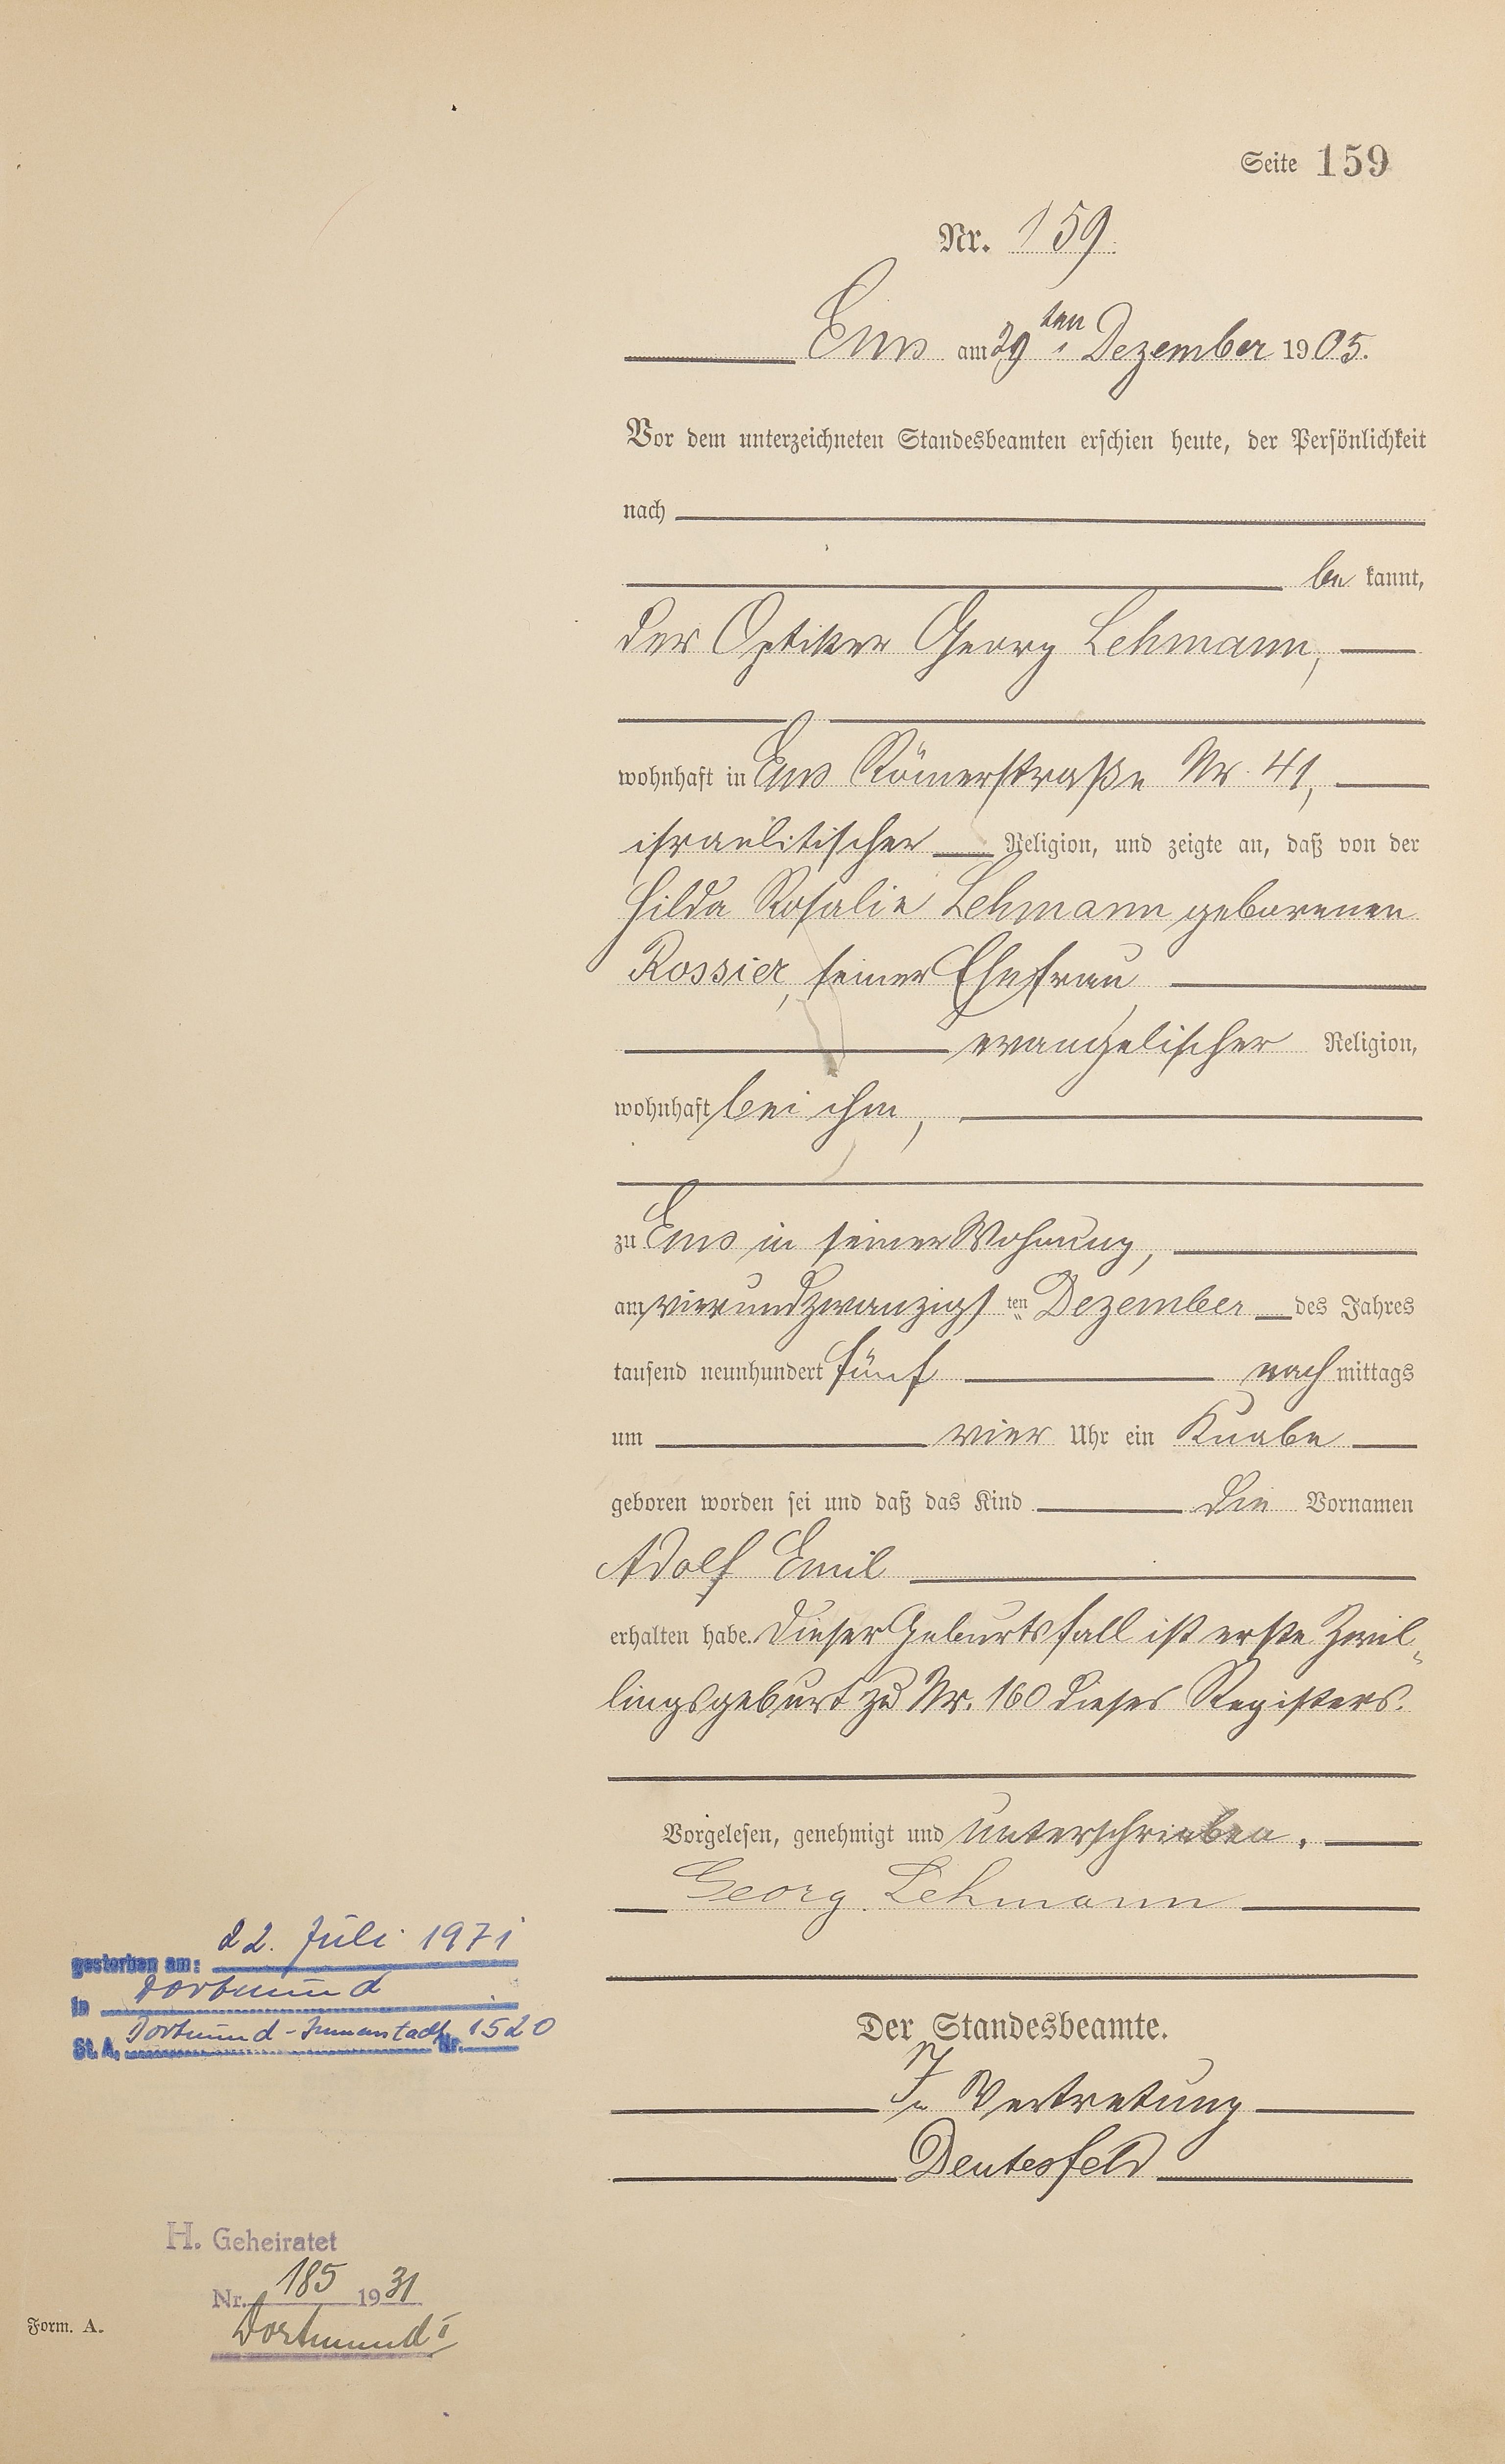 Seite 159
Nr. 159.
Ems am 29ten Dezember 1905.
Vor dem unterzeichneten Standesbeamten erschien heute, der Persönlichkeit
nach
be kannt,
der Optiker Georg Lehmann,
wohnhaft in Ems Römerstraße Nr. 41,
israelitischer Religion, und zeigte an, daß von der
Hilda Rosalie Lehmann geborenen
Rossier, seiner Ehefrau
evangelischer Religion,
wohnhaft bei ihm,
zu Ems in seiner Wohnung,
am vierundzwanzigsten Dezember des Jahres
tausend neunhundert fünf nachmittags
um vier Uhr ein Knabe
geboren worden sei und daß das Kind die Vornamen
Adolf Emil
erhalten habe. Dieser Geburtsfall ist erste Zwil-
lingsgeburt zu Nr. 160 dieses Registers.
Vorgelesen, genehmigt und unterschrieben.
Georg Lehmann
Der Standesbeamte.
In Vertretung
Deutesfeld
gestorben am: 22. Juli 1971
in Dortmund
St. A. Dortmund-Innenstadt Nr. 1520
H. Geheiratet
Nr. 185 1931
Dortmund I
Form. A.